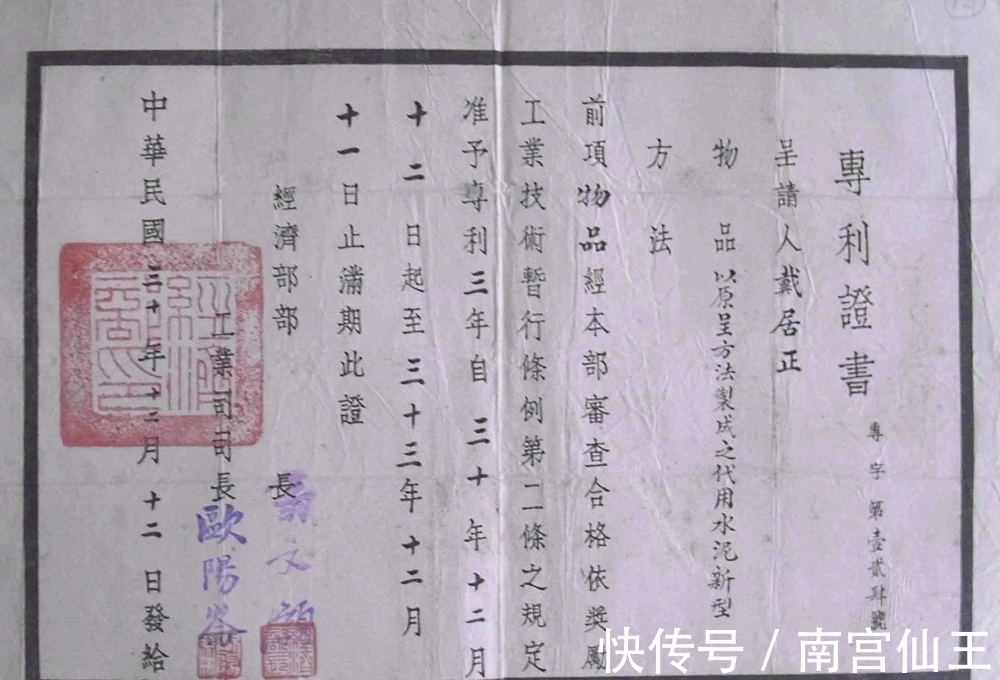 專利證書
專字第壹貳肆號
呈請人戴居正
物品以原呈方法製成之代用水泥新型
方法
前項物品經本部審查合格依獎勵
工業技術暫行條例第二條之規定
准予專利三年自三十年十二月
十二日起至三十三年十二月
十一日止滿期此證
經濟部部長翁文灝
工業司司長歐陽崙
中華民國三十年十二月十二日發給
經濟部印
快传号/南宫仙王